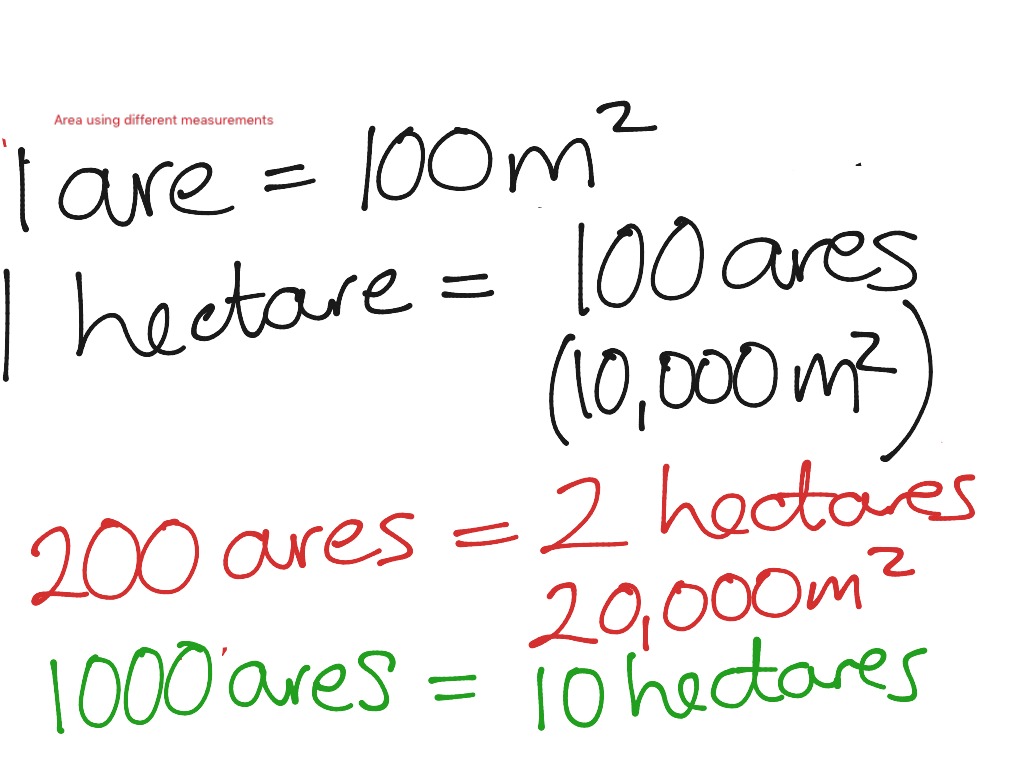 Area using different measurements
1 are = 100m²
1 hectare = 100 ares
(10,000m²)
200 ares = 2 hectares
20,000m²
1000 ares = 10 hectares